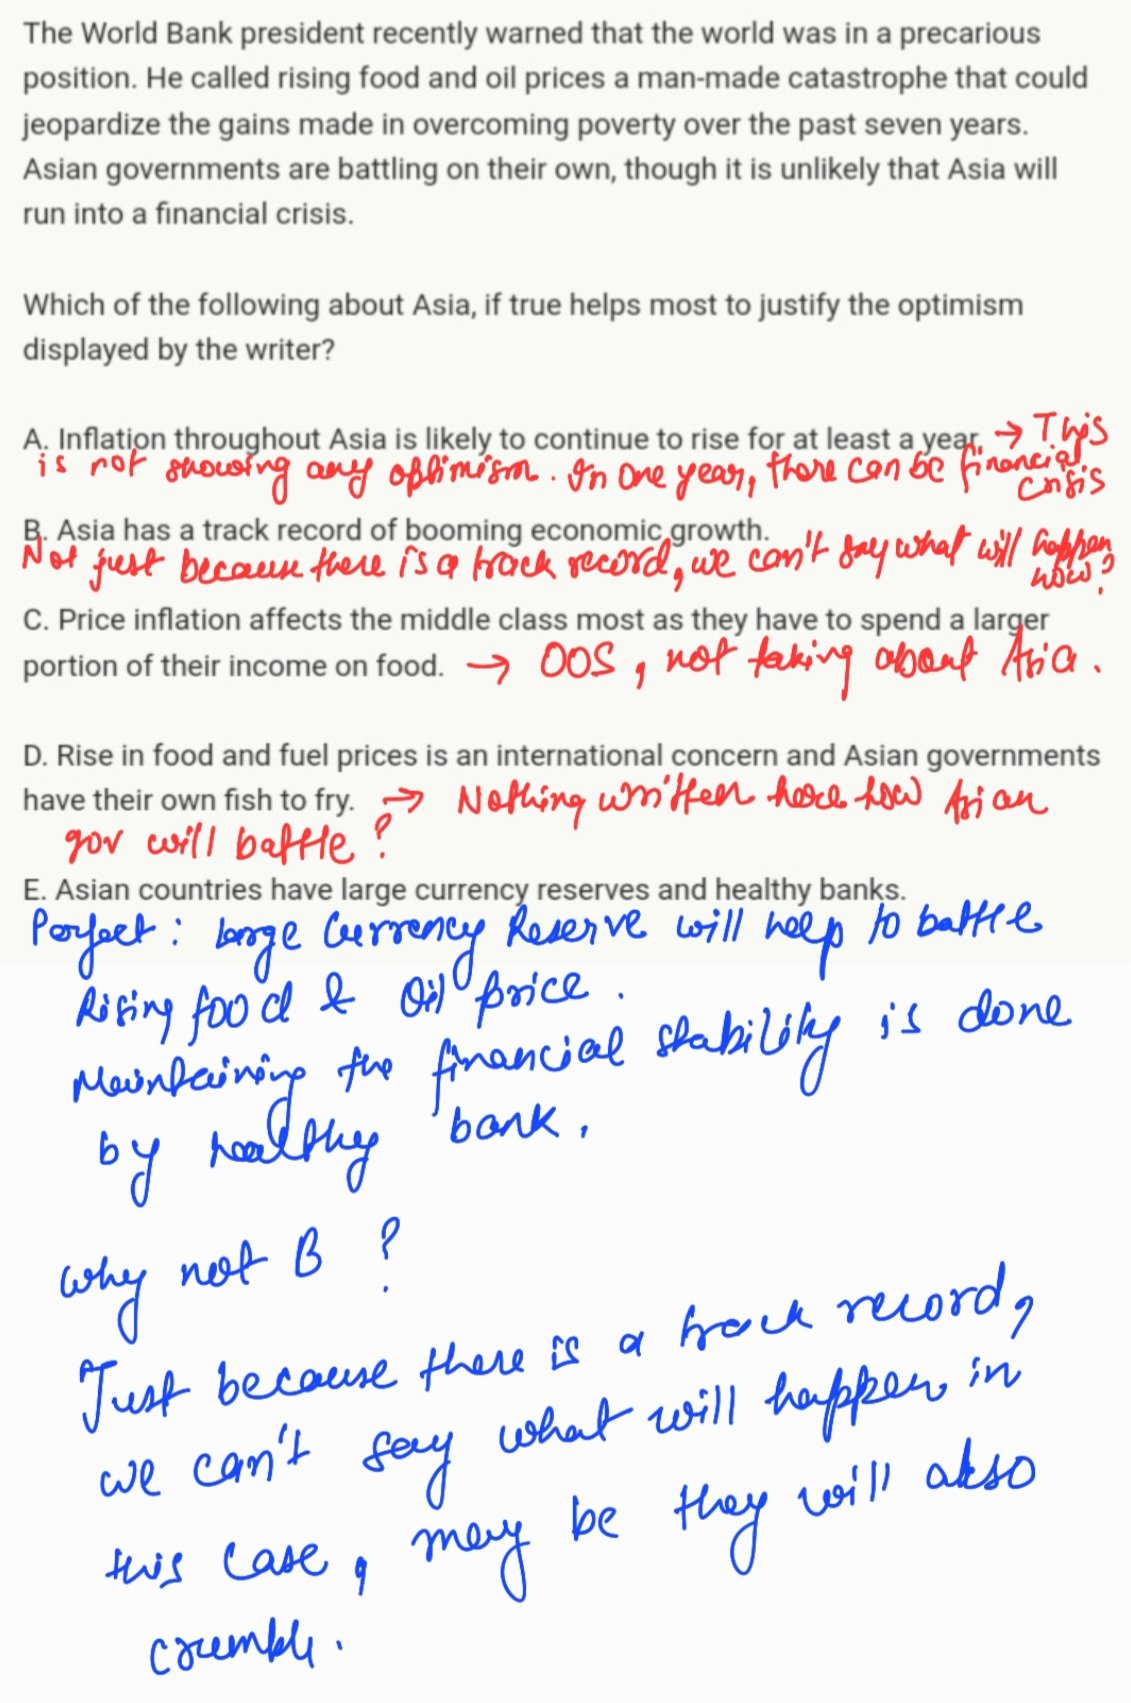 The World Bank president recently warned that the world was in a precarious
position. He called rising food and oil prices a man-made catastrophe that could
jeopardize the gains made in overcoming poverty over the past seven years.
Asian governments are battling on their own, though it is unlikely that Asia will
run into a financial crisis.
Which of the following about Asia, if true helps most to justify the optimism
displayed by the writer?
A. Inflation throughout Asia is likely to continue to rise for at least a year. → This
is not showing any optimism. In one year, there can be financial
crisis
B. Asia has a track record of booming economic growth.
Not just because there is a track record, we can't say what will happen
now?
C. Price inflation affects the middle class most as they have to spend a larger
portion of their income on food. → OOS, not taking about Asia.
D. Rise in food and fuel prices is an international concern and Asian governments
have their own fish to fry. → Nothing written here how Asian
gov will battle?
E. Asian countries have large currency reserves and healthy banks.
Perfect: large Currency Reserve will help to battle
Rising food & Oil price.
Maintaining the financial stability is done
by healthy bank.
why not B ?
Just because there is a track record,
we can't say what will happen in
this case, may be they will also
crumble.